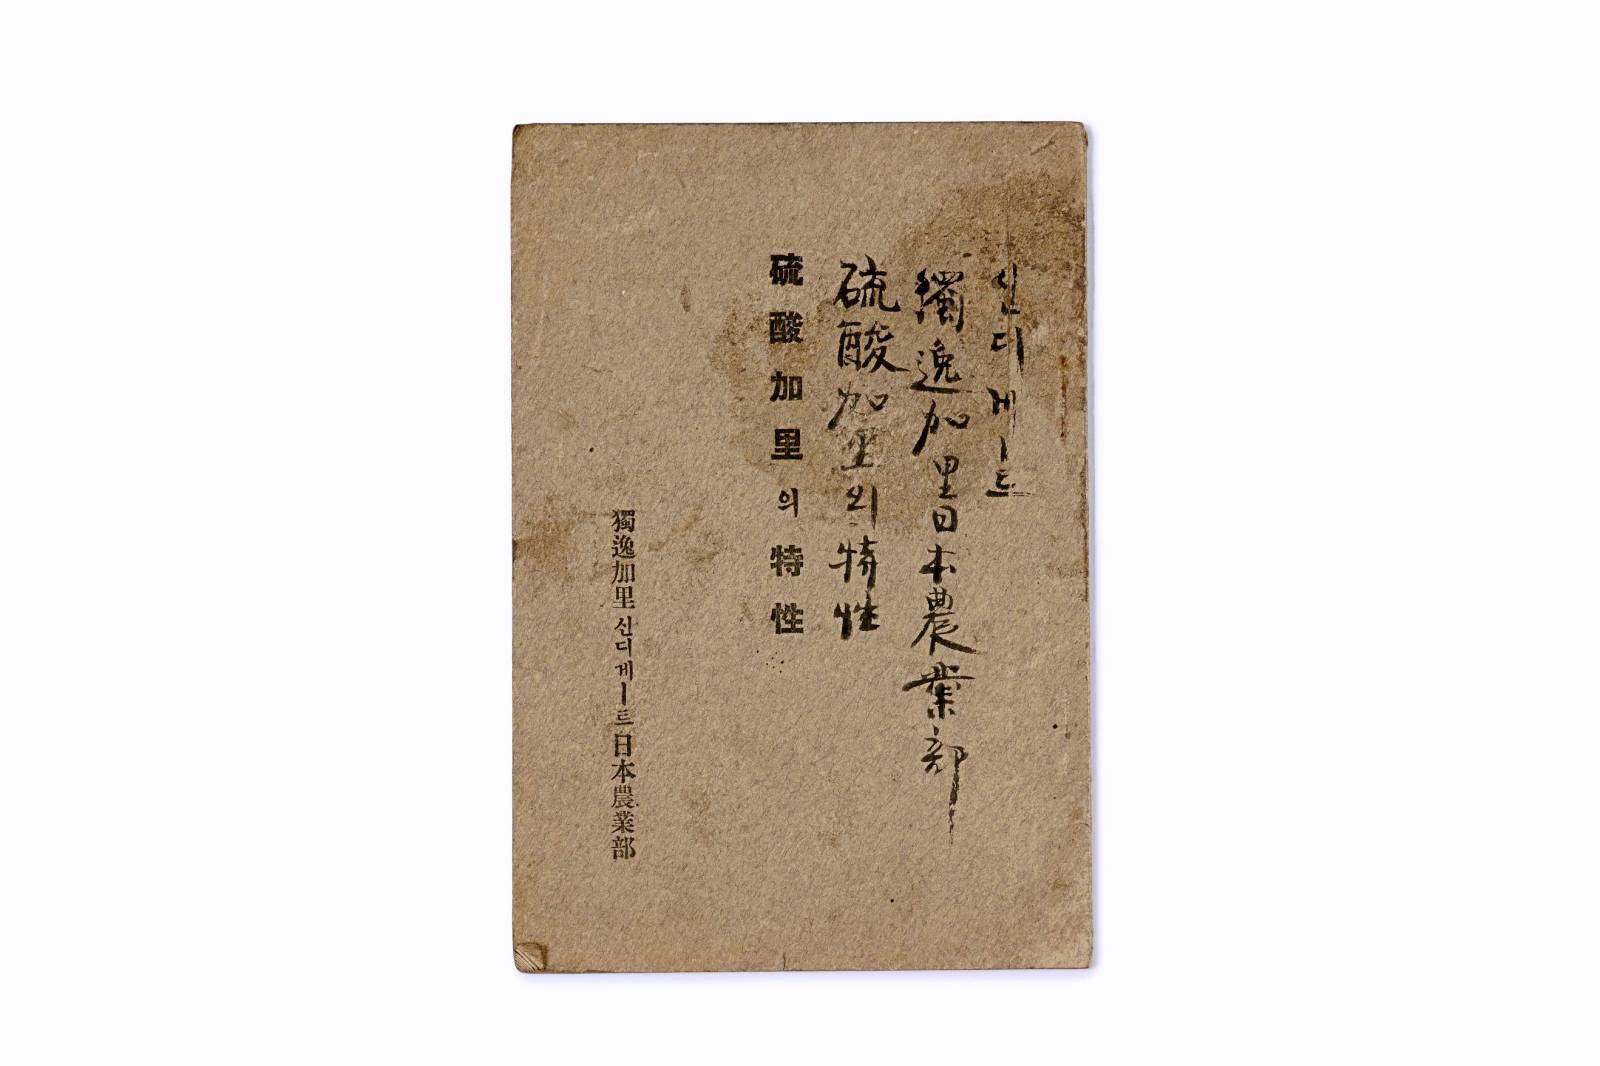 신디게ー트
獨逸加里日本農業部
硫酸加里의特性
硫酸加里의特性
獨逸加里신디게ー트日本農業部